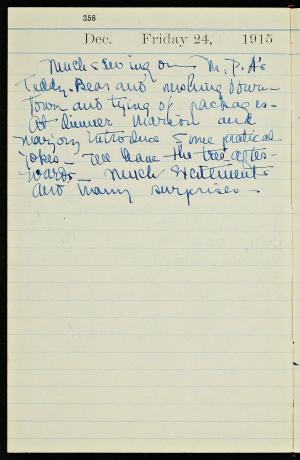 358
Dec. Friday 24, 1915
Much sewing on M. P. A's
Teddy-Bear and rushing down-
town and tying of packages-
At dinner Marion and
Marjory introduce some pratical
jokes - We have the tree after-
wards - Much excitement
and many surprises -